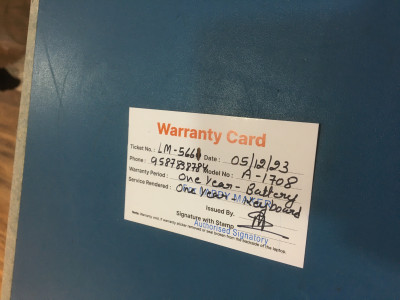 Warranty Card
Ticket No. : LM-5661 Date : 05/12/23
Phone : 9587838784 Model No : A-1708
Warranty Period : One Year - Battery
Service Rendered : One Year - Keyboard
Issued By.
Signature with Stamp
Authorised Signatory
Note: Warranty void, if warranty sticker removed or and broken from the backside of the laptop.